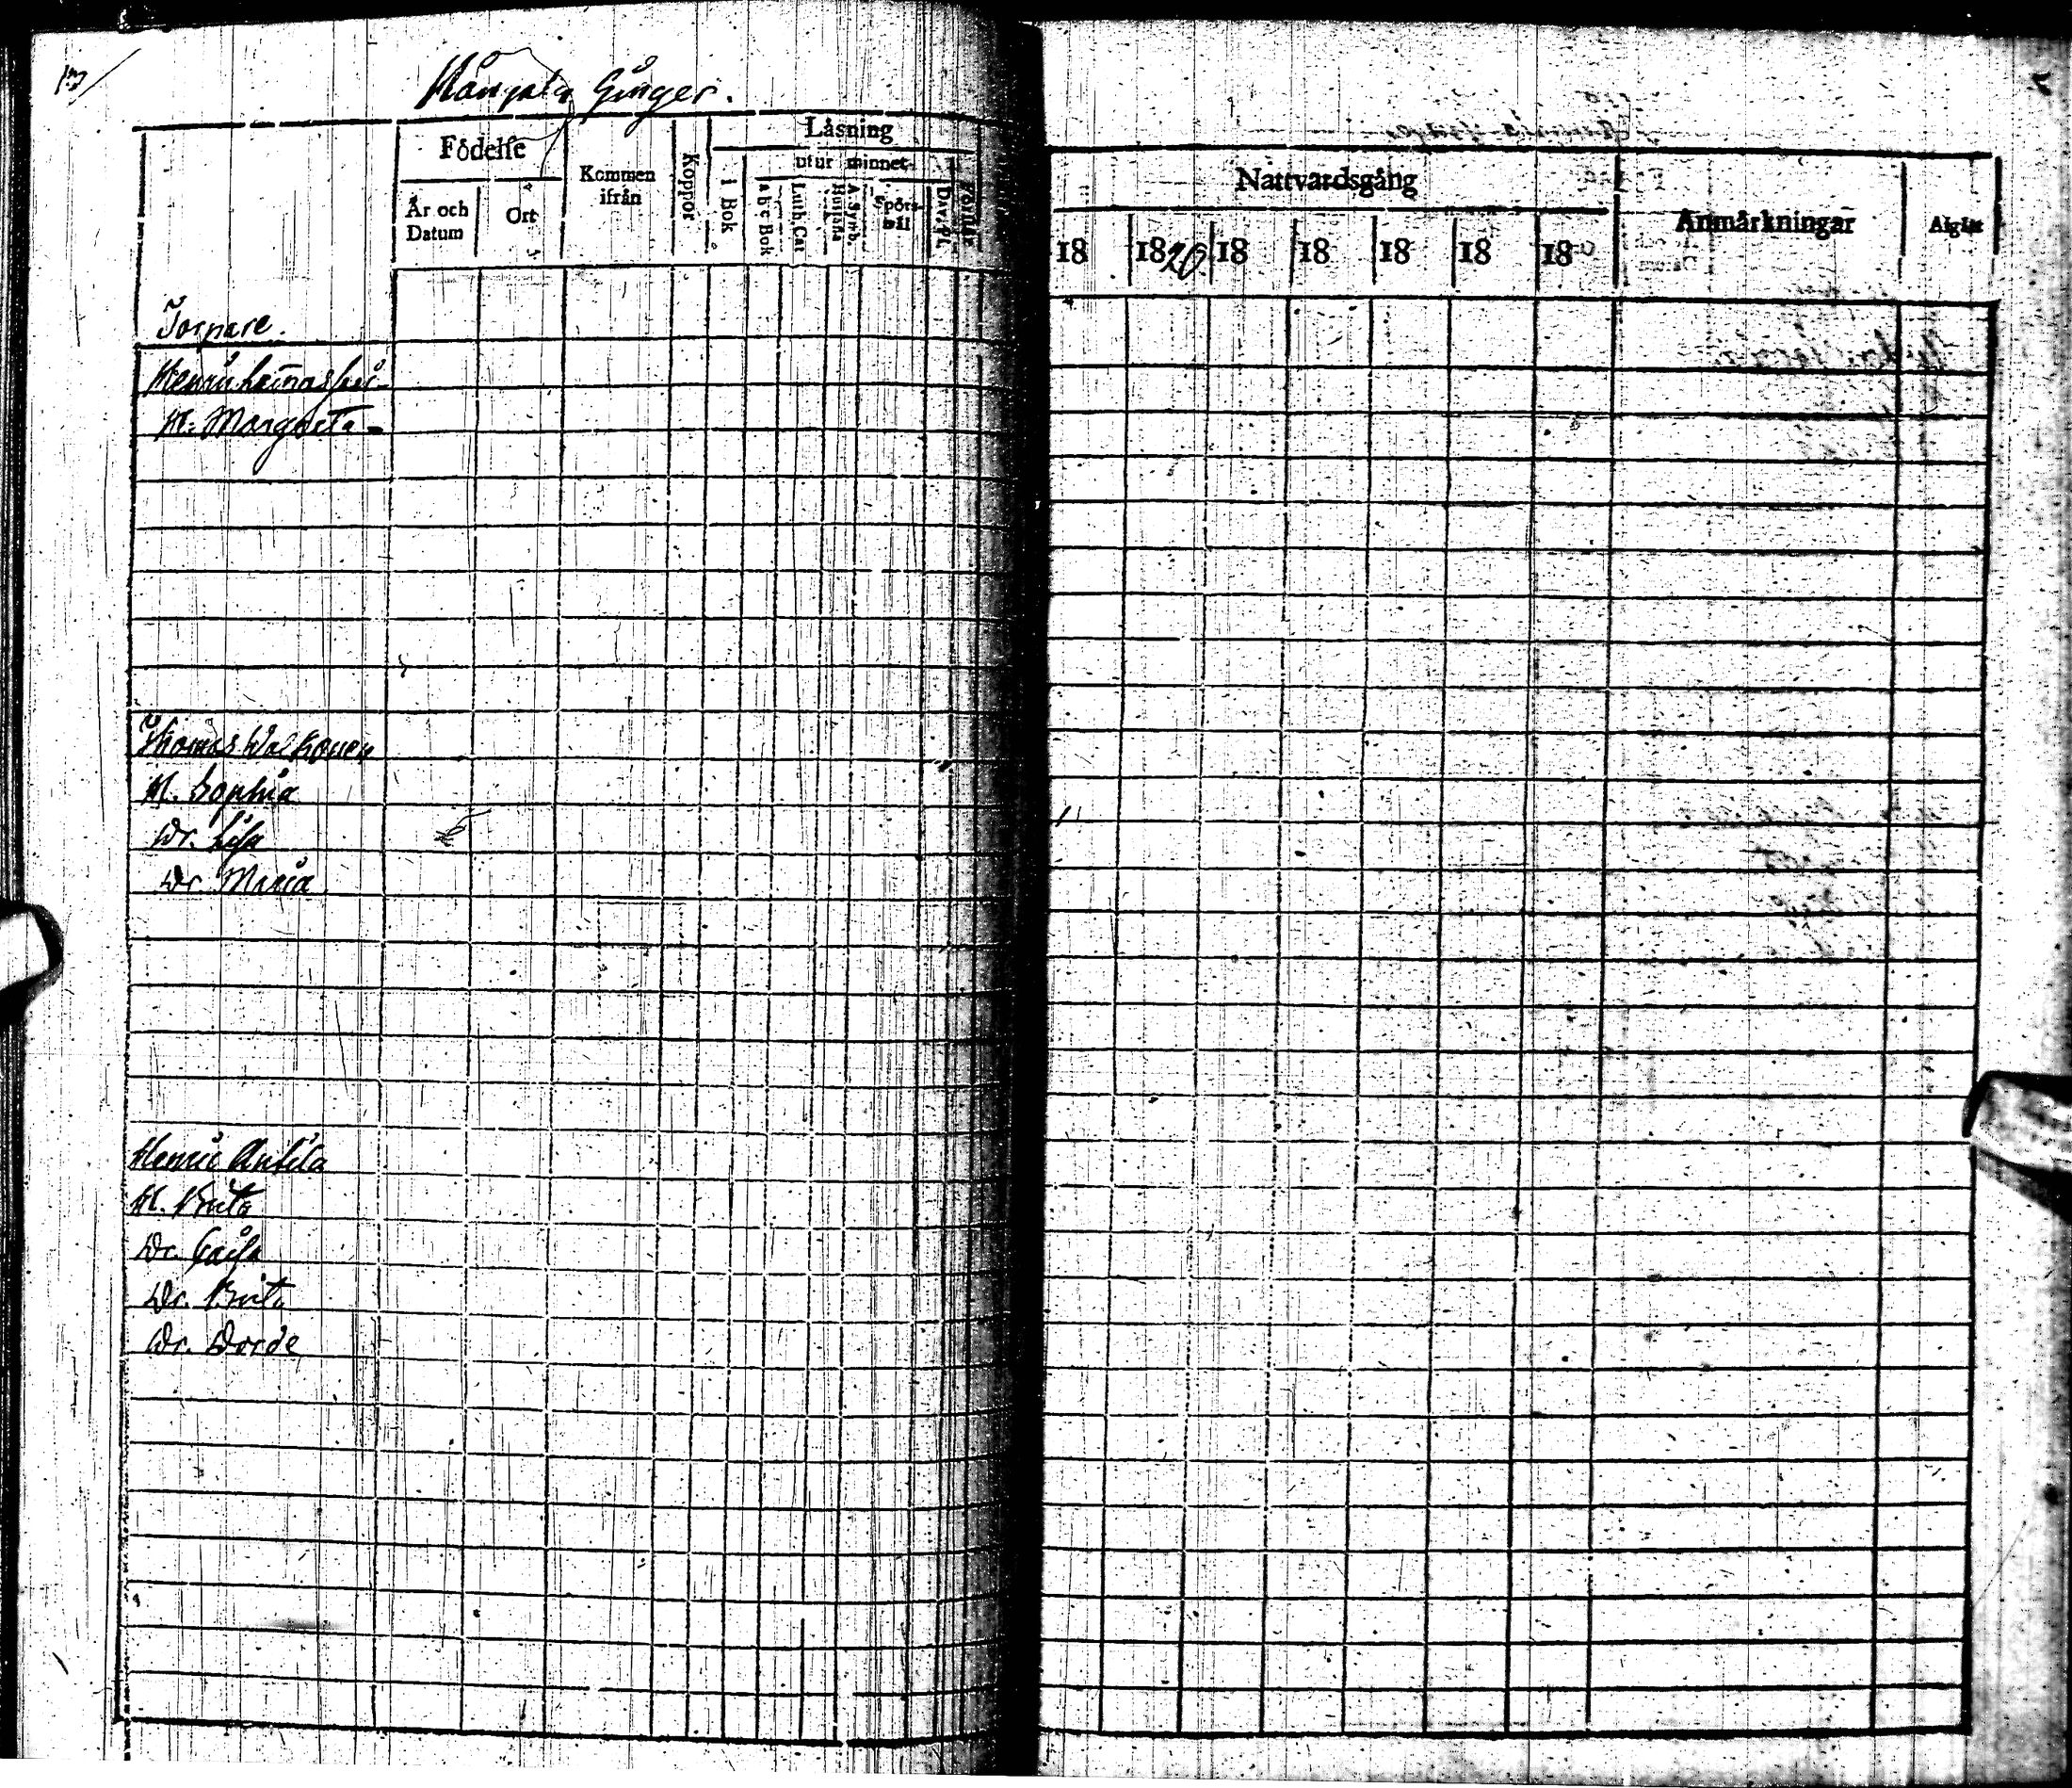 Födelse
Kommen ifrån
Koppor
Läsning
utur minnet
År och Datum
Ort
i Bok
abc Bok
Luth. Cat
A. Symb.
Spörsmål
Dav. Ps.
Nattvardsgång
Anmärkningar
18
1820
18
18
18
18
18
Torpare.
H. Margreta
Thomas Walkonen
H. Sophia
Dr. Lisa
Dr. Maria
Henric Antila
H. Brita
Dr. Caisa
Dr. Brita
Dr. Dorde